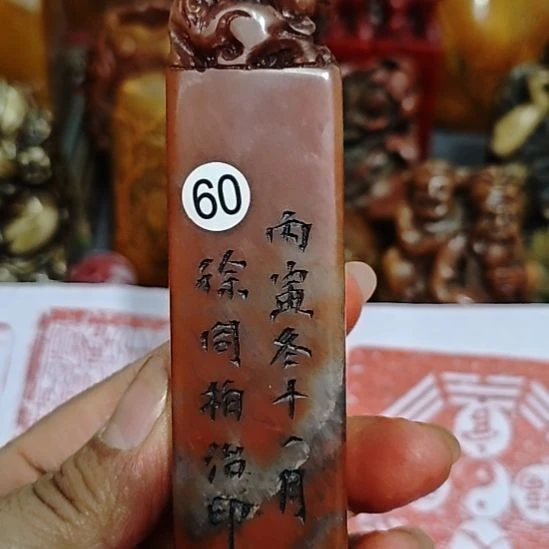 60
丙寅冬十一月
徐同柏治印